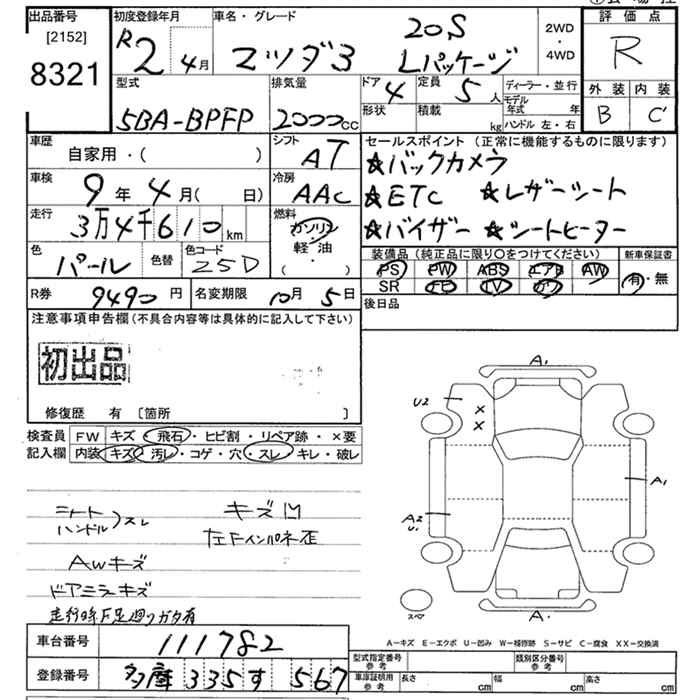 出品番号 初度登録年月 車名・グレード 評価点
[2152] R2 4月 マツダ3 20S 2WD・4WD R
8321 Lパッケージ
型式 排気量 ドア 4 定員 5人 ディーラー・並行 外装 内装
5BA-BPFP 2000cc 形状 積載 kg モデル年式 年 B C
ハンドル 左・右
車歴 シフト セールスポイント (正常に機能するものに限ります)
自家用・( ) AT ★バックカメラ
車検 9年 4月( 日) 冷房 AAC ★ETC ★レザーシート
走行 3万4千610km 燃料 ガソリン ★バイザー ★シートヒーター
軽油・( )
色 パール 色替 色コード 25D 装備品 (純正品に限り○をつけてください) 新車保証書
PS PW ABS エアB AW 有・無
R券 9490円 名変期限 10月5日 SR TV
注意事項申告欄(不具合内容等は具体的に記入して下さい) 後日品
初出品
修復歴 有 [箇所 ]
検査員 FW キズ・飛石・ヒビ割・リペア跡・×要
記入欄 内装 キズ・汚レ・コゲ・穴・スレ・キレ・破レ
A1
U2 × ×
A1
A2 U1
シート ハンドル スレ キズ凹
左Fインパネ歪
AWキズ
ドアミラーキズ
走行時F足廻りガタ有
スペア
A1
A-キズ E-エクボ U-凹み W-補修跡 S-サビ C-腐食 XX-交換済
車台番号 111782 型式指定番号 参考 類別区分番号 参考
登録番号 多摩 335 す 567 車庫証明用 参考 長さ cm 幅 cm 高さ cm